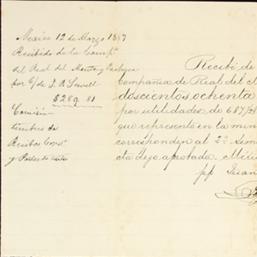 Mexico 12 de Marzo 1887
Recibido de la Comp.ª
del Real del Monte y Pachuca
por c/ de J. R. Sowell
$289.81
Comisión
timbre de
Recibos Cor.
y Poder de visto
Recibí de
Compañia de Real del M
doscientos ochenta
por utilidades de 687/
que represento en la min
corresponden al 2.º Sem
cta. Dejo aprobada. Méxic
pp Juan